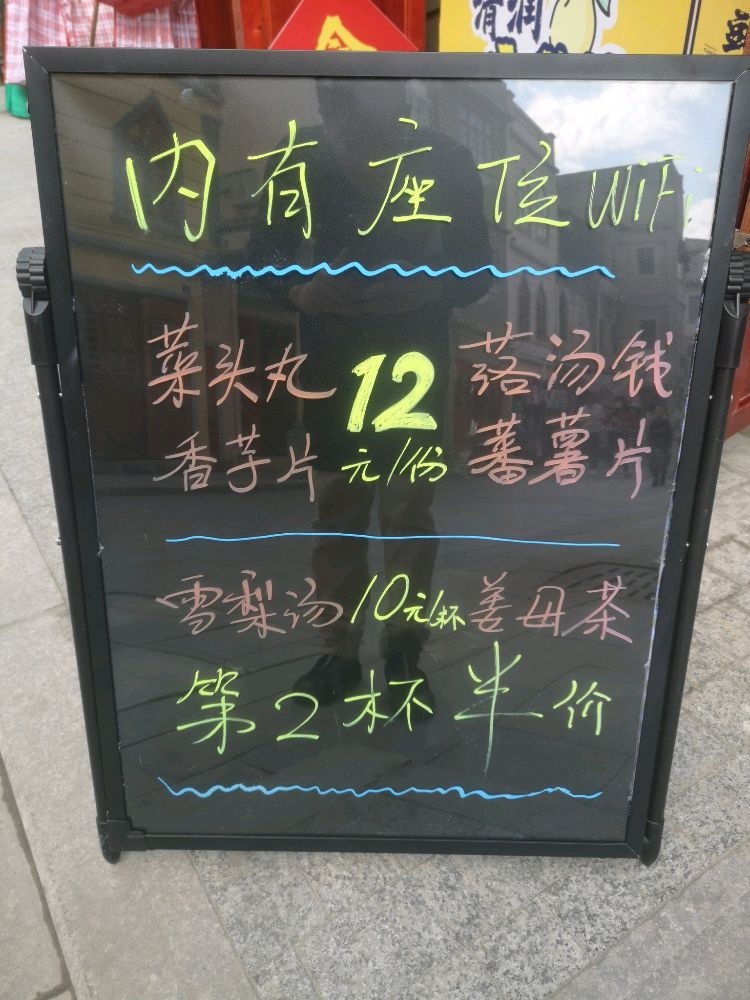 清润
内有座位WiFi
菜头丸 12 落汤钱
香芋片 元/份 蕃薯片
雪梨汤 10元/杯 善母茶
第2杯半价